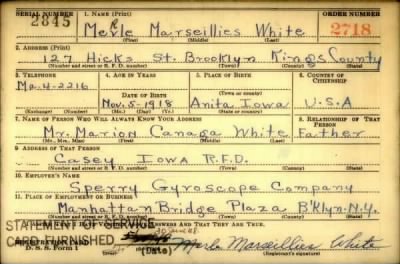 SERIAL NUMBER 1. NAME (Print) ORDER NUMBER
2845 Merle Marseillies White 2718
(First) (Middle) (Last)
2. ADDRESS (Print)
127 Hicks St. Brooklyn Kings County
(Number and street or R. F. D. number) (Town) (County) (State)
3. TELEPHONE 4. AGE IN YEARS 5. PLACE OF BIRTH 6. COUNTRY OF CITIZENSHIP
Ma. 4-2216
DATE OF BIRTH (Town or county)
Nov. 5-1918 Anita Iowa U.S.A
(Exchange) (Number) (Mo.) (Day) (Yr.) (State or country)
7. NAME OF PERSON WHO WILL ALWAYS KNOW YOUR ADDRESS 8. RELATIONSHIP OF THAT PERSON
Mr. Marion Canaga White Father
(Mr., Mrs., Miss) (First) (Middle) (Last)
9. ADDRESS OF THAT PERSON
Casey Iowa R.F.D.
(Number and street or R. F. D. number) (Town) (County) (State)
10. EMPLOYER'S NAME
Sperry Gyroscope Company
11. PLACE OF EMPLOYMENT OR BUSINESS
Manhattan Bridge Plaza B'Klyn-N.Y.
(Number and street or R. F. D. number) (Town) (County) (State)
STATEMENT OF SERVICE
CARD FURNISHED
REGISTRATION CARD
D. S. S. Form 1 (Date) Merle Marseillies White
(Registrant's signature)